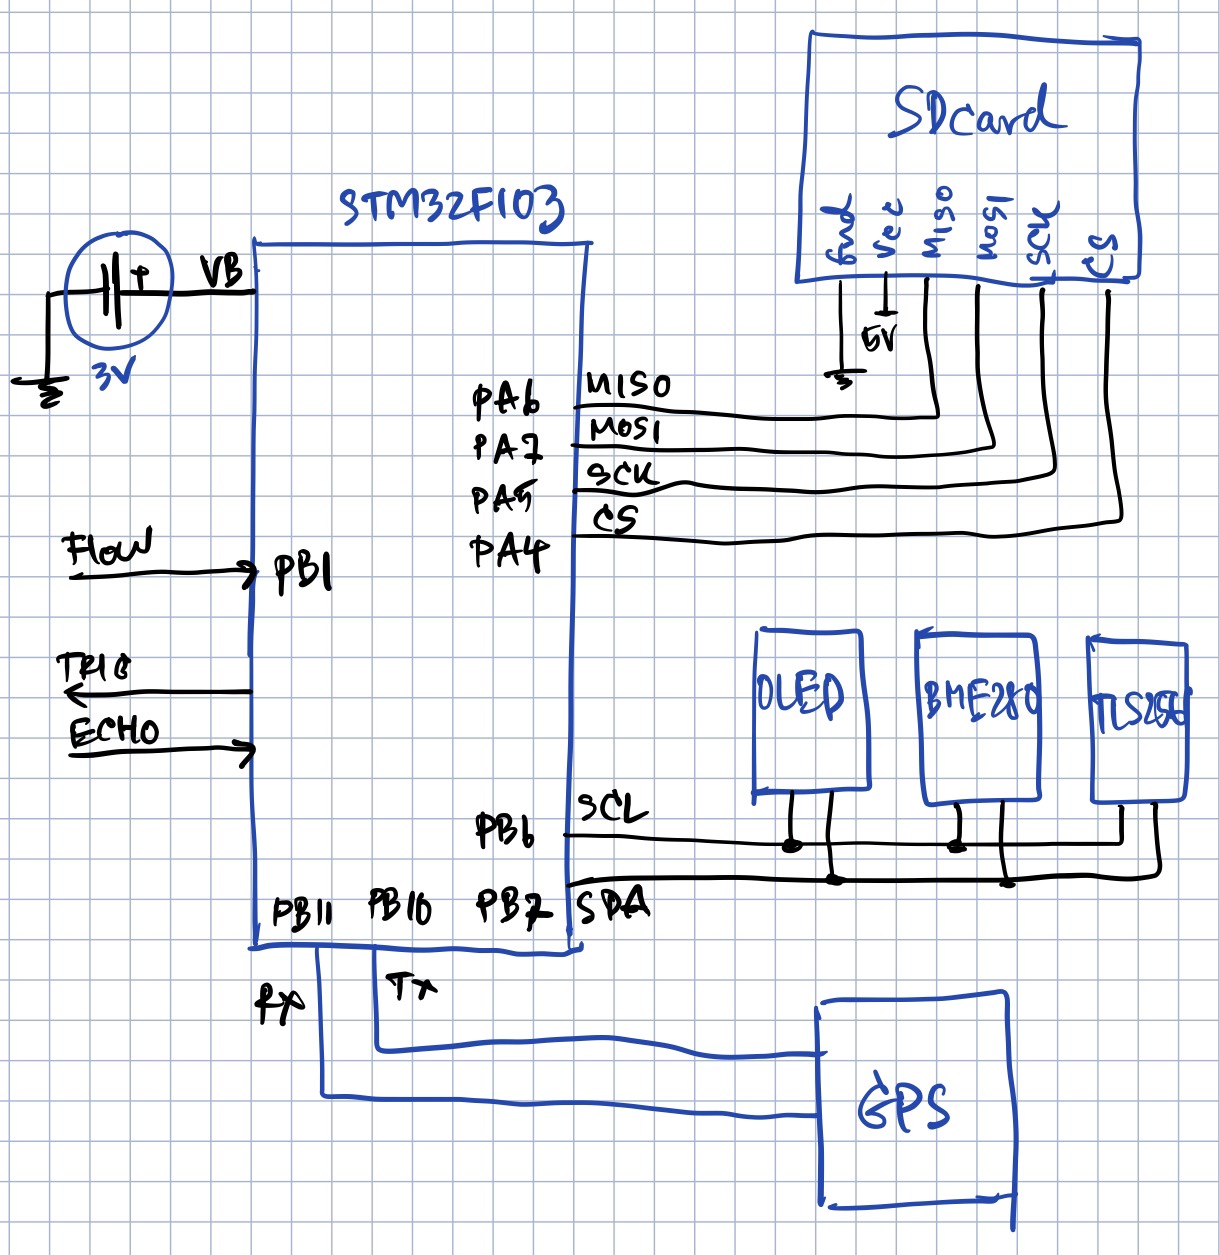 SDcard
Gnd
Vcc
MISO
MOSI
SCK
CS
5V
STM32F103
VB
+
3V
PA6
MISO
PA7
MOSI
PA5
SCK
PA4
CS
Flow
PB1
TRIG
ECHO
OLED
BME280
PB6
SCL
PB7
SDA
PB11
PB10
RX
Tx
GPS